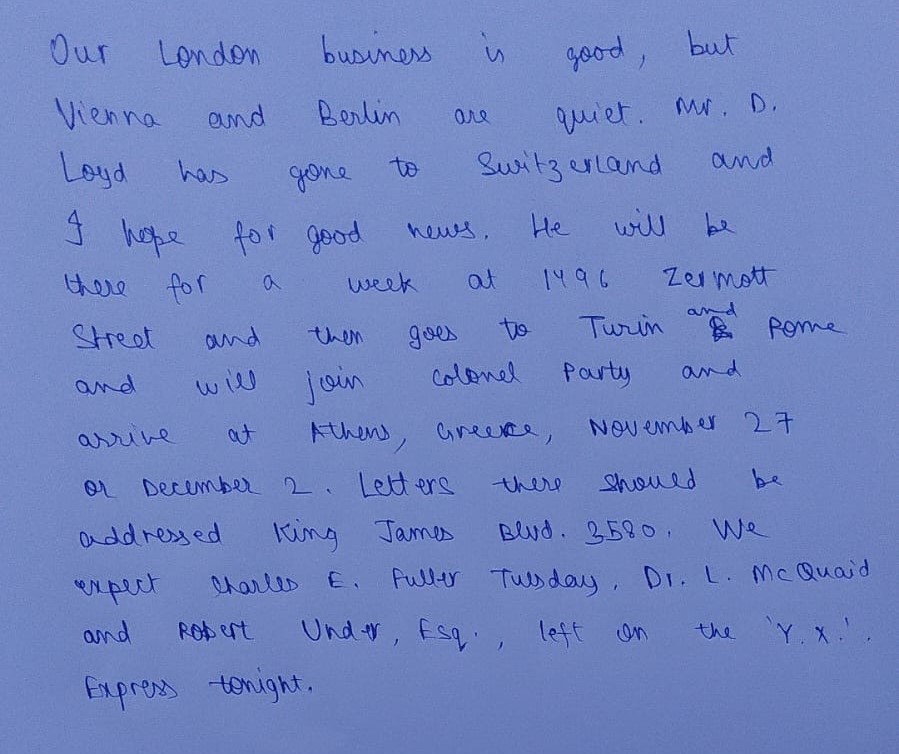 Our London business is good, but
Vienna and Berlin are quiet. Mr. D.
Loyd has gone to Switzerland and
I hope for good news. He will be
there for a week at 1496 Zermott
Street and then goes to Turin and Rome
and will join Colonel Party and
arrive at Athens, Greece, November 27
or December 2. Letters there should be
addressed King James Blvd. 3580. We
expect Charles E. Fuller Tuesday. Dr. L. McQuaid
and Robert Under, Esq., left on the 'Y.X.'.
Express tonight.